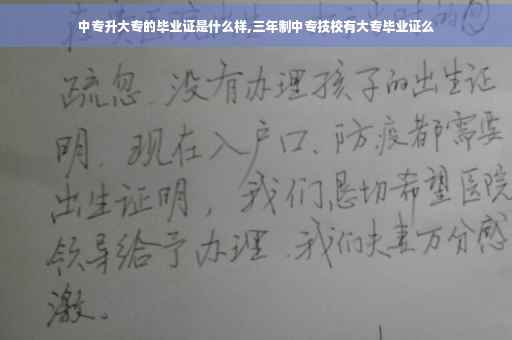 中专升大专的毕业证是什么样,三年制中专技校有大专毕业证么
疏忽、没有办理孩子的出生证
明、现在入户口、防疫都需要
出生证明，我们恳切希望医院
领导给予办理、我们夫妻万分感
激。